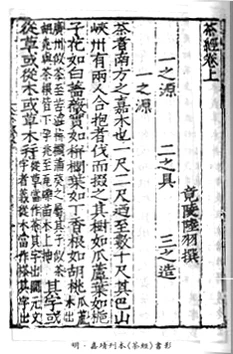 茶經卷上
竟陵陸羽撰
一之源　二之具　三之造
一之源
茶者南方之嘉木也一尺二尺廼至數十尺其巴山
峽州有兩人合抱者伐而掇之其樹如瓜蘆葉如梔
子花如白薔薇實如栟櫚葉如丁香根如胡桃瓜蘆木出
廣州似茶至苦澁栟櫚蒲葵之屬其子似茶
胡桃與茶根皆下孕兆至瓦礫苗木上抽其字或
從草或從木或草木并從草當作茶其字出開元文
字音義從木當作搽其字出
明·嘉靖刊本《茶經》書影